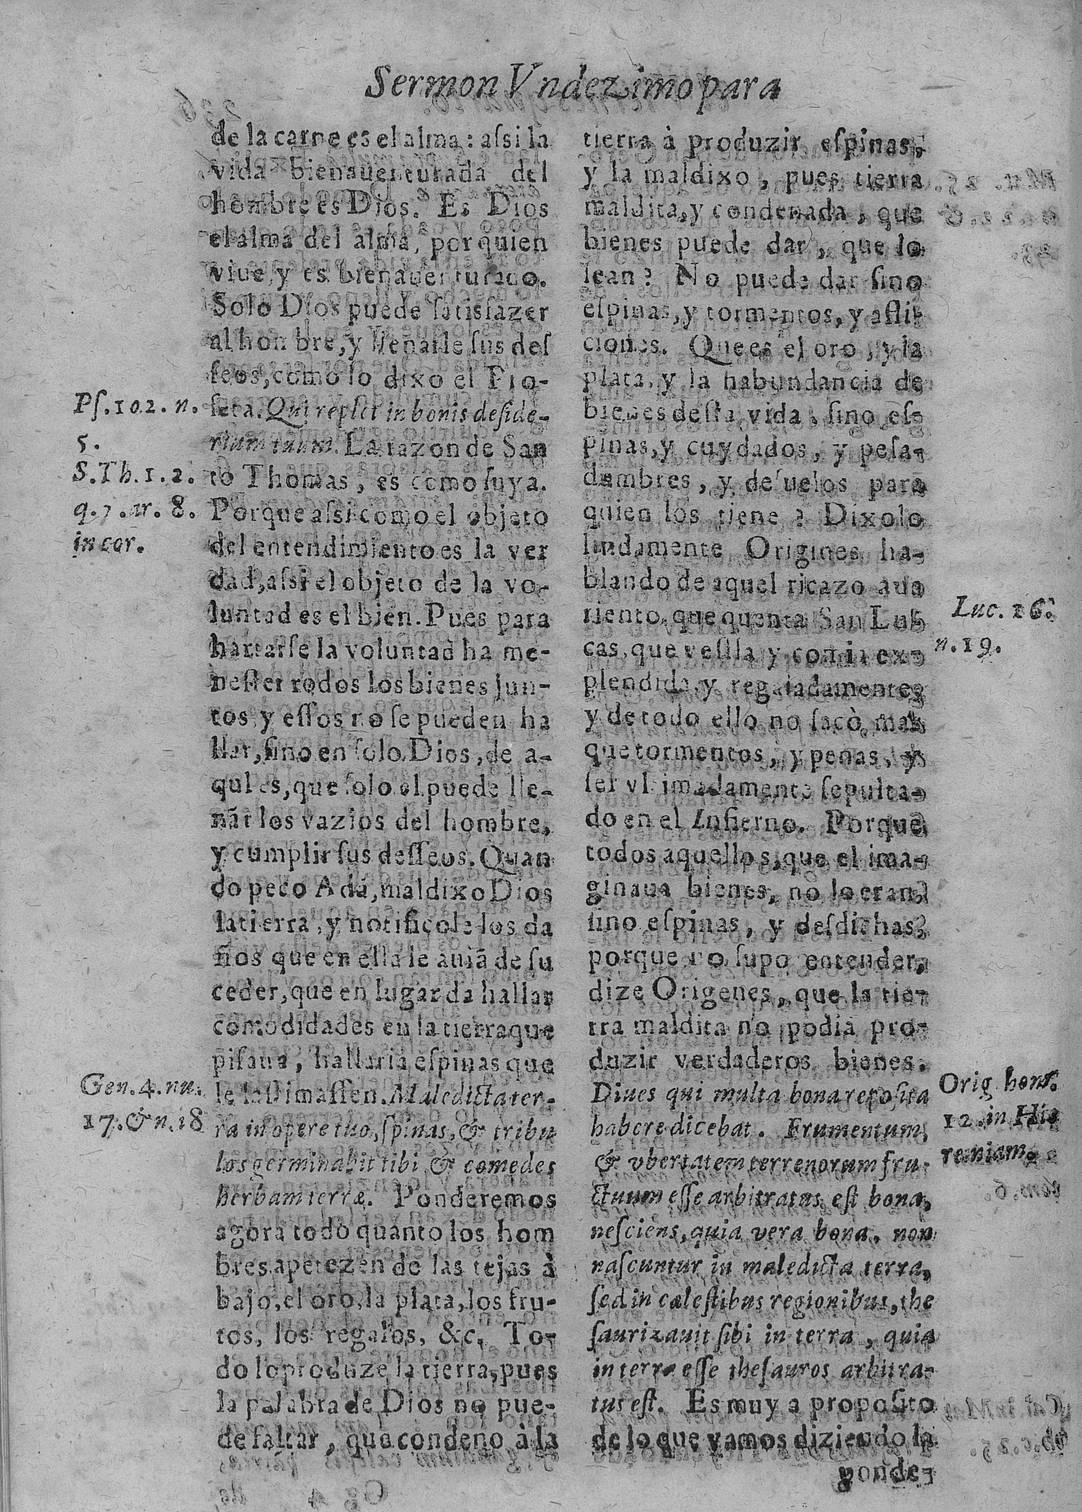 Sermon Vndezimo para
de la carne es el alma: assi la
vida bienauenturada del
hombre es Dios. Es Dios
el alma del alma, por quien
viue, y es bienauenturado.
Solo Dios puede satisfazer
al hombre, y llenarle sus des
seos, como lo dixo el Pro-
feta. Qui replet in bonis deside-
rium tuum. La razon de San
to Thomas, es como suya.
Porque assi como el objeto
del entendimiento es la ver
dad, assi el objeto de la vo-
luntad es el bien. Pues para
hartarse la voluntad ha me-
nester todos los bienes jun-
tos y essos no se pueden ha
llar, sino en solo Dios, de a-
qui es, que solo el puede lle-
nar los vazios del hombre,
y cumplir sus desseos. Quan
do peco Adã, maldixo Dios
la tierra, y notificole los da
ños que en ella le auiã de su
ceder, que en lugar da hallar
comodidades en la tierra que
pisaua, hallaria espinas que
le lastimassen. Maledicta ter-
ra in opere tuo, spinas, & tribu
los germinabit tibi & comedes
herbam terræ. Ponderemos
agora todo quanto los hom
bres apetezen de las tejas à
bajo, el oro, la plata, los fru-
tos, los regalos, &c. To-
do lo produze la tierra, pues
la palabra de Dios no pue-
de faltar, que condeno à la
Ps. 102. n.
5.
S. Th. 1. 2.
q. 2. ar. 8.
in cor.
Gen. 4. nu.
17. & n. 18
tierra à produzir espinas,
y la maldixo, pues tierra
maldita, y condenada, que
bienes puede dar, que lo
sean? No puede dar sino
espinas, y tormentos, y aflic
ciones. Que es el oro, y la
plata, y la habundancia de
bienes desta vida, sino es-
pinas, y cuydados, y pesa-
dumbres, y desuelos para
quien los tiene? Dixolo
lindamente Origines, ha-
blando de aquel ricazo aua
riento, que quenta San Lu-
cas, que vestia y comia ex-
plendida, y regaladamente,
y de todo ello no sacò mas
que tormentos, y penas, y
ser vltimadamente sepulta-
do en el Infierno. Porque
todos aquellos, que el ima-
ginaua bienes, no lo eran,
sino espinas, y desdichas,
porque no supo entender,
dize Origenes, que la tie-
rra maldita no podia pro-
duzir verdaderos bienes.
Diues qui multa bona reposita
habere dicebat. Frumentum,
& vbertatem terrenorum fru-
ctuum esse arbitratus est bona,
nesciens, quia vera bona, non
nascuntur in maledicta terra,
sed in cælestibus regionibus, the
saurizauit sibi in terra, quia
in terra esse thesauros arbitra-
tus est. Es muy a proposito
de lo que vamos diziendo la
ponde-
Luc. 16.
n. 19.
Orig. hom.
12. in Hie
remiam.